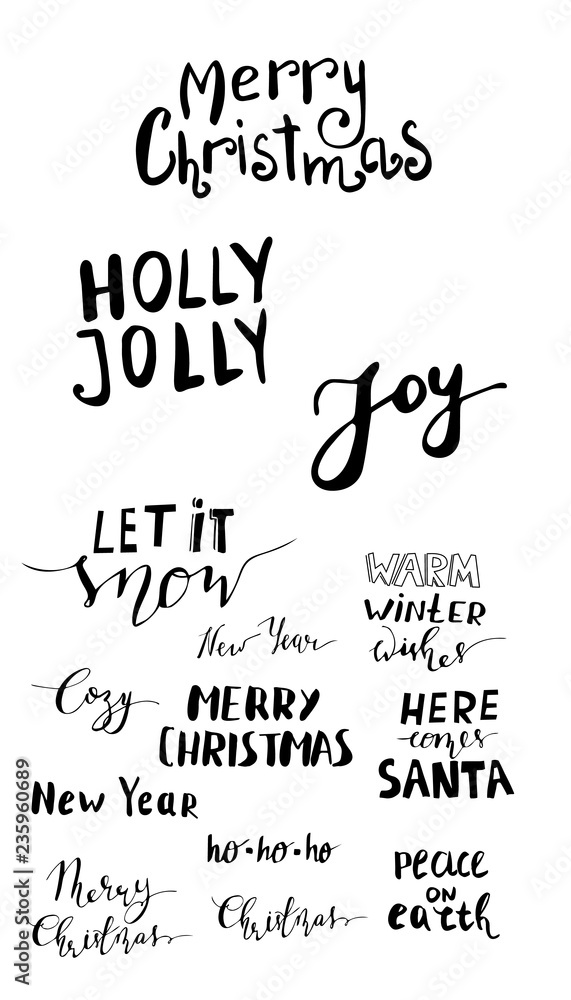 Merry
Christmas
HOLLY
JOLLY
Joy
LET iT
snow
WARM
WiNtER
wishes
New Year
Cozy
MERRY
CHRISTMAS
HERE
comes
SANTA
New Year
ho-ho-ho
Merry
Christmas
Christmas
peace
ON
earth
Adobe Stock | #235960689